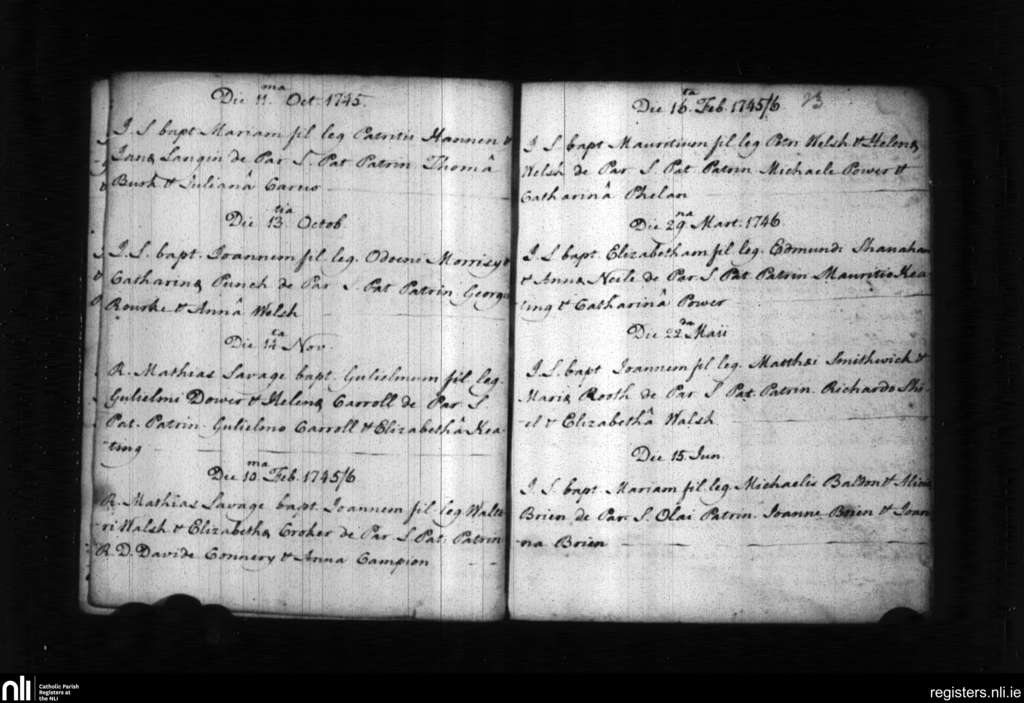 Die 11.ma Oct. 1745.
I. S bapt Mariam fil leg Patritii Hannen &
Janæ Langin de Par S. Pat Patrin Thomâ
Burk & Julianâ Carew
Die 13.tia Octob
I. S. bapt. Joannem fil leg. Odoeni Morrisy &
Catharinæ Punch de Par S. Pat Patrin. Georgio
Rourke & Annâ Welsh
Die 14.ta Nov.
R. Mathias Savage bapt. Gulielmum fil leg.
Gulielmi Dower & Helenæ Carroll de Par S
Pat. Patrin Gulielmo Carroll & Elizabethâ Kea-
ting
Die 10.ma Feb. 1745/6
R. Mathias Savage bapt. Joannem fil leg Walte-
ri Walsh & Elizabethæ Croker de Par S Pat. Patrin
R. D. Davide Connery & Anna Campion
Die 16.ta Feb. 1745/6
23
I. S. bapt Mauritium fil leg Welsh & Helenæ
Welsh de Par S. Pat Patrin Michaele Power &
Catharinâ Phelan
Die 29.na Mart. 1746
I. S bapt. Elizabetham fil leg. Edmundi Shanahan
& Annæ Neile de Par S Pat Patrin Mauritio Kea-
ting & Catharinâ Power
Die 22.da Maii
I. S. bapt Joannem fil leg. Matthæi Smithwick &
Mariæ Rooth de Par S Pat. Patrin. Richardo Shi-
el & Elizabethâ Walsh
Die 15. Jun.
I. S. bapt Mariam fil leg Michaelis Balton &
Brien de Par. S. Olai Patrin. Joanne Brien & Joan-
na Brien
nli
Catholic Parish
Registers at
the NLI
registers.nli.ie